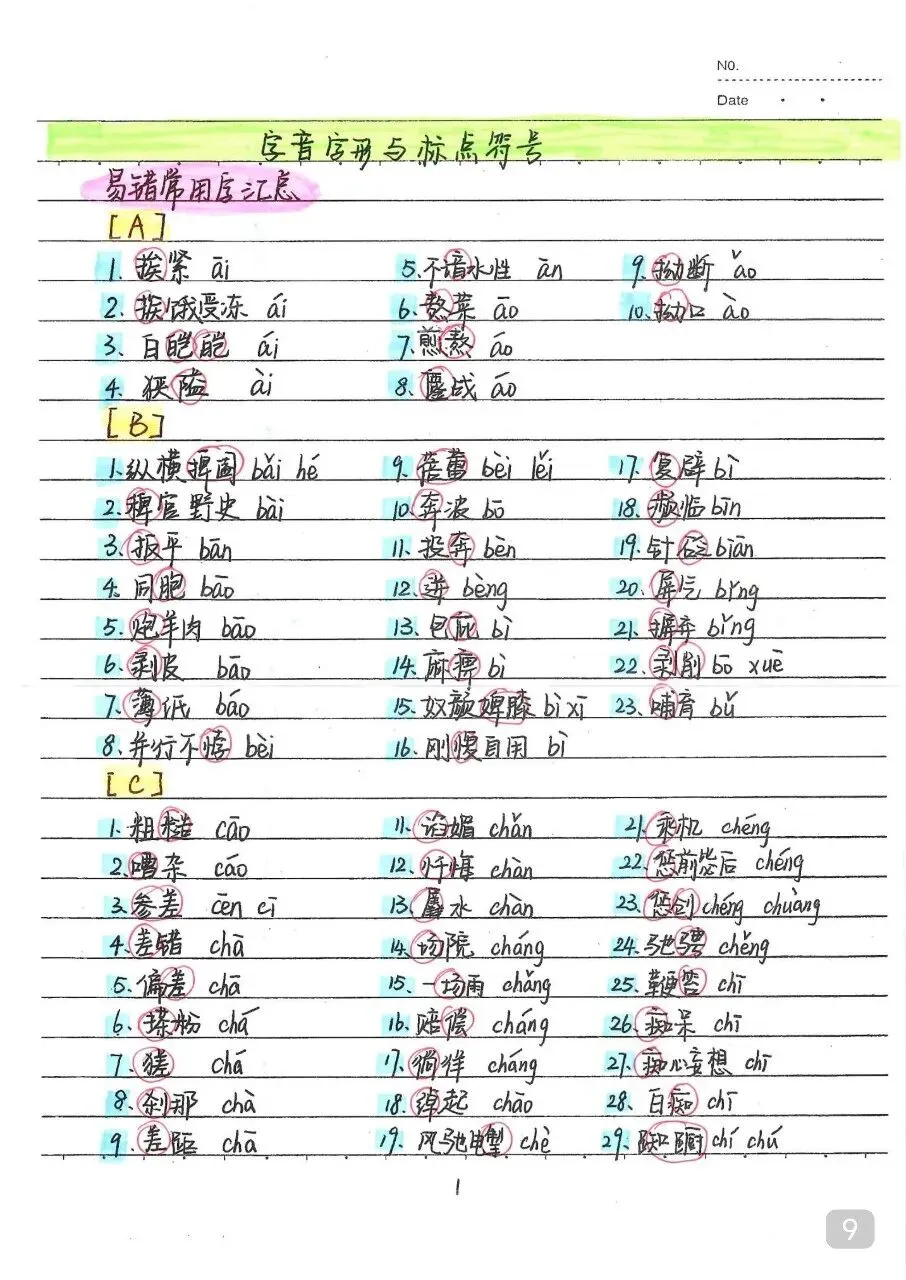 NO.
Date
字音字形与标点符号
易错常用字汇总
[A]
1. 挨紧 āi 5. 不谙水性 ān 9. 拗断 ǎo
2. 挨饿受冻 ái 6. 熬菜 āo 10. 拗口 ào
3、白皑皑 ái 7. 煎熬 áo
4. 狭隘 ài 8、鏖战 áo
[B]
1、纵横捭阖 bǎi hé 9. 蓓蕾 bèi lěi 17. 复辟 bì
2. 稗官野史 bài 10. 奔波 bō 18. 濒临 bīn
3. 扳平 bān 11. 投奔 bèn 19. 针砭 biān
4. 同胞 bāo 12. 迸 bèng 20. 屏气 bǐng
5. 炮羊肉 bāo 13. 包庇 bì 21. 摒弃 bǐng
6. 剥皮 bāo 14. 麻痹 bì 22. 剥削 bō xuē
7. 薄纸 báo 15. 奴颜婢膝 bì xī 23. 哺育 bǔ
8. 并行不悖 bèi 16. 刚愎自用 bì
[C]
1. 粗糙 cāo 11. 谄媚 chǎn 21. 乘机 chéng
2. 嘈杂 cáo 12. 忏悔 chàn 22. 惩前毖后 chéng
3. 参差 cēn cī 13. 羼水 chàn 23. 惩创 chéng chuàng
4. 差错 chā 14. 场院 cháng 24. 驰骋 chěng
5. 偏差 chā 15. 一场雨 cháng 25. 鞭笞 chī
6. 搽粉 chá 16. 赔偿 cháng 26. 痴呆 chī
7. 猹 chá 17. 徜徉 cháng 27. 痴心妄想 chī
8. 刹那 chà 18. 绰起 chāo 28. 白痴 chī
9. 差距 chā 19. 风驰电掣 chè 29. 踟蹰 chí chú
1
9